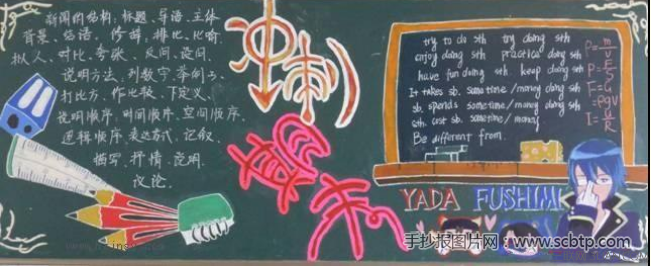 新闻的结构：标题、导语、主体
背景、结语、修辞、排比、比喻
拟人、对比、夸张、反问、设问
说明方法、列数字、举例子、
打比方、作比较、下定义、
说明顺序、时间顺序、空间顺序、
逻辑顺序、表达方式、记叙、
描写、抒情、说明、
议论、
冲刺
try to do sth try doing sth
enjoy doing sth practice doing sth
have fun doing sth keep doing sth
It takes sb. sometime/money doing sth
sb. spends sometime/money doing sth
sth. cost sb. sometime/money
Be different from
YADA FUSHIMI
手抄报图片网：www.scbtp.com